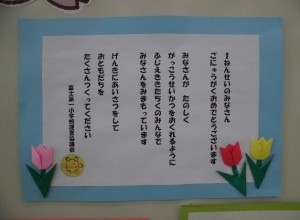 1ねんせいのみなさん
ごにゅうがくおめでとうございます
みなさんが たのしく
がっこうせいかつをおくれるように
ふじえきたちくのみんなで
みなさんをみまもっています
げんきにあいさつをして
おともだちを
たくさんつくってください
富士第一小学校運営協議会